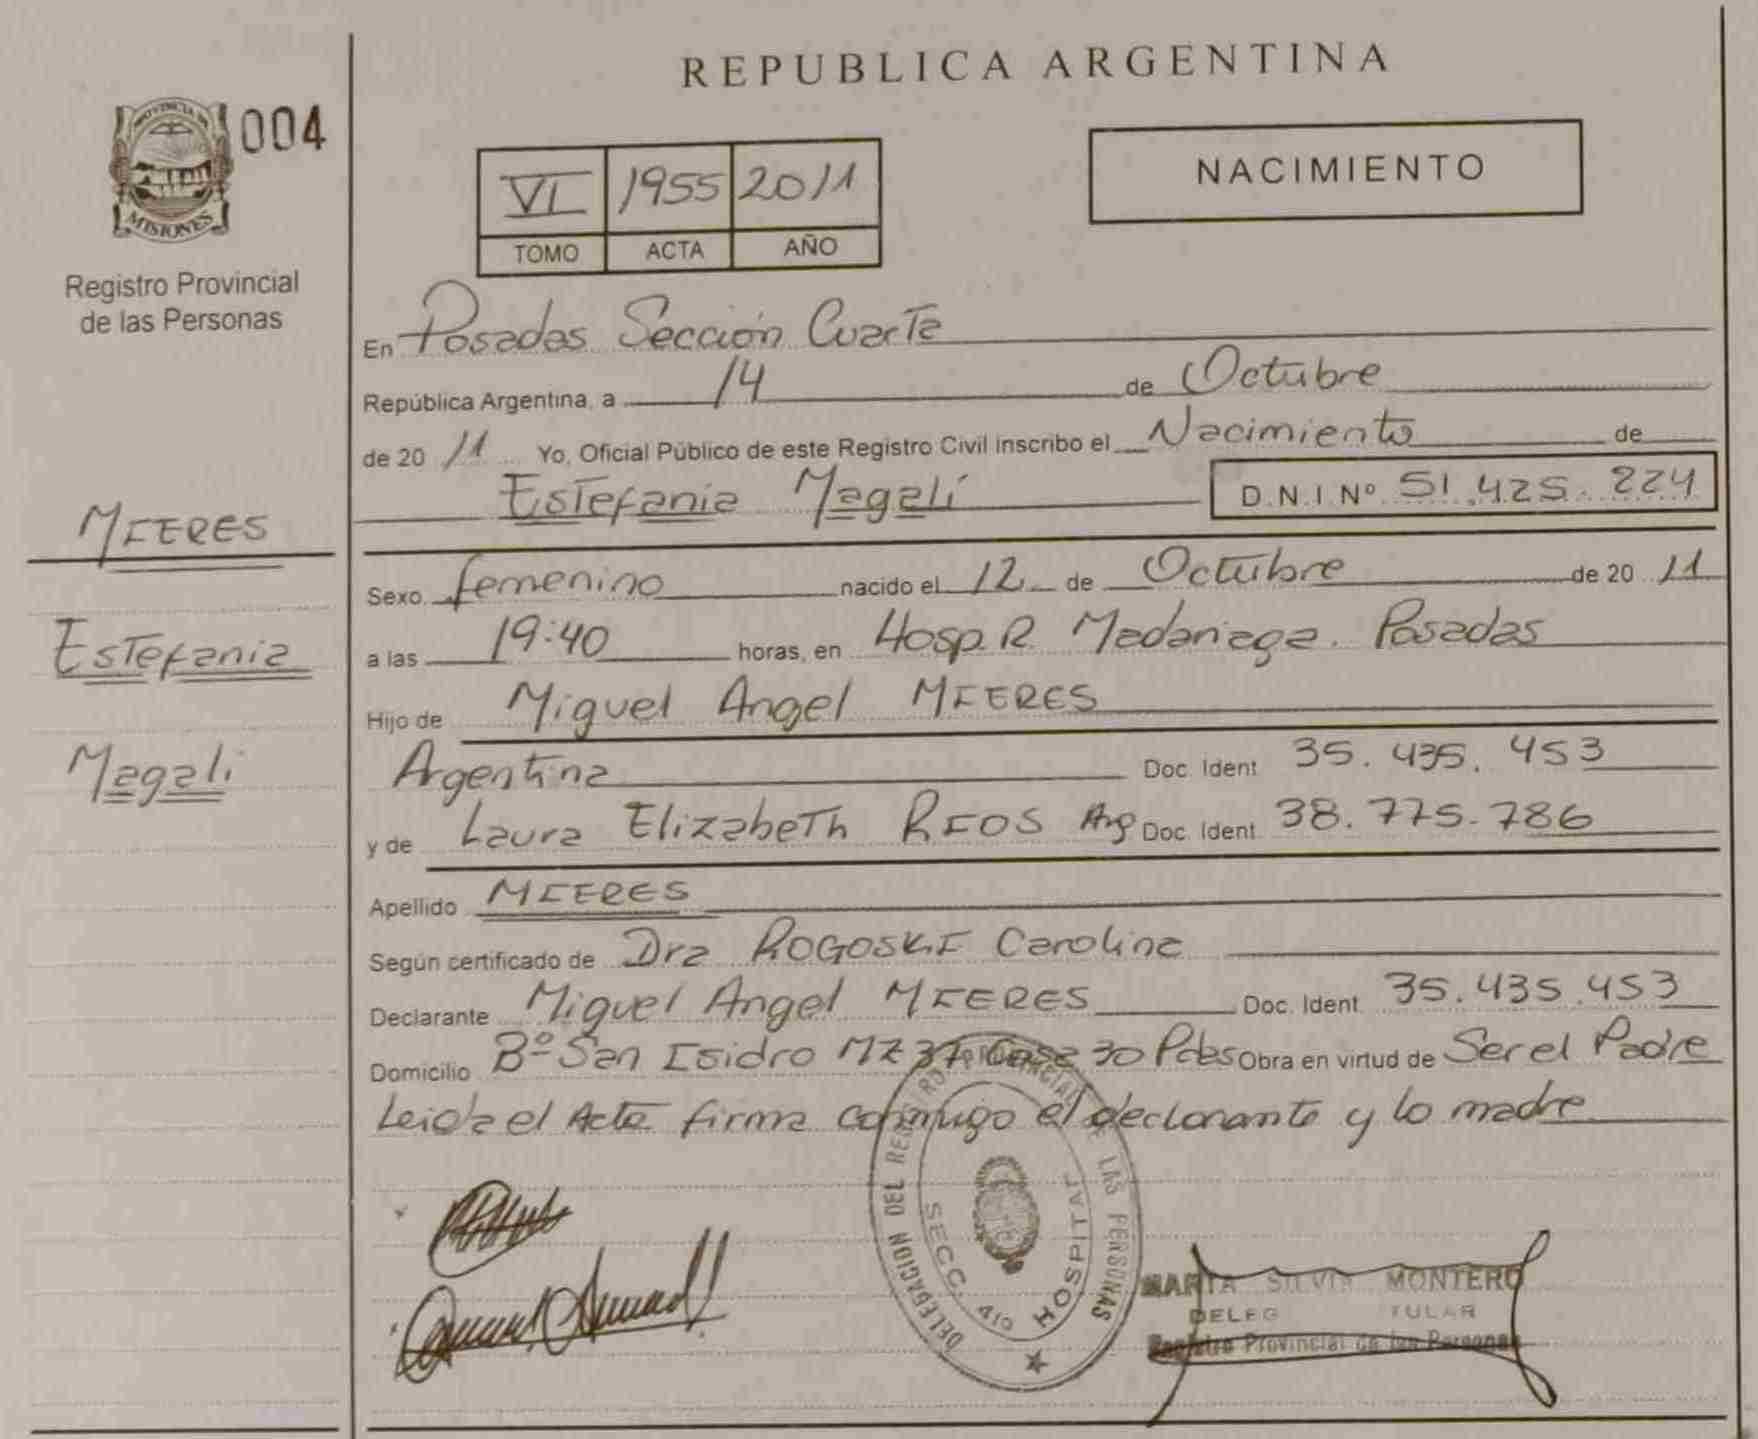 REPUBLICA ARGENTINA
PROVINCIA DE
MISIONES
004
Registro Provincial
de las Personas
VI 1955 2011
TOMO ACTA AÑO
NACIMIENTO
En Posadas Sección Cuarta
República Argentina, a 14 de Octubre
de 20 11 Yo, Oficial Público de este Registro Civil inscribo el Nacimiento de
Estefania Magalí D.N.I Nº 51.425.224
MIERES
Estefania
Magalí
Sexo femenino nacido el 12 de Octubre de 20 11
a las 19:40 horas, en Hosp. R. Madariaga. Posadas
Hijo de Miguel Angel MIERES
Argentina Doc. Ident. 35.435.453
y de Laura Elizabeth RIOS Arg Doc. Ident. 38.775.786
Apellido MIERES
Según certificado de Dra ROGOSKI Carolina
Declarante Miguel Angel MIERES Doc. Ident. 35.435.453
Domicilio Bº San Isidro MZ 37 Casa 30 Pdas Obra en virtud de Ser el Padre
Leida el Acta firma conmigo el declarante y la madre
DELEGACION DEL REGISTRO PROVINCIAL DE LAS PERSONAS
SECC. 4ta HOSPITAL
MARTA SILVIA MONTERO
DELEG TULAR
Registro Provincial de las Personas